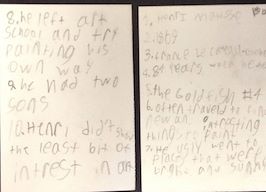 8. he left art
school and try
painting his
own way
9. he had two
sons
10. Henri did't show
the least bit of
intrest in art
1. Henri
2. 1869
3. france le
4. 84 years
5. the Goldfish #4
6. often traveld to
new
things to paint
7. He usly went to
places that were
bright and sunny